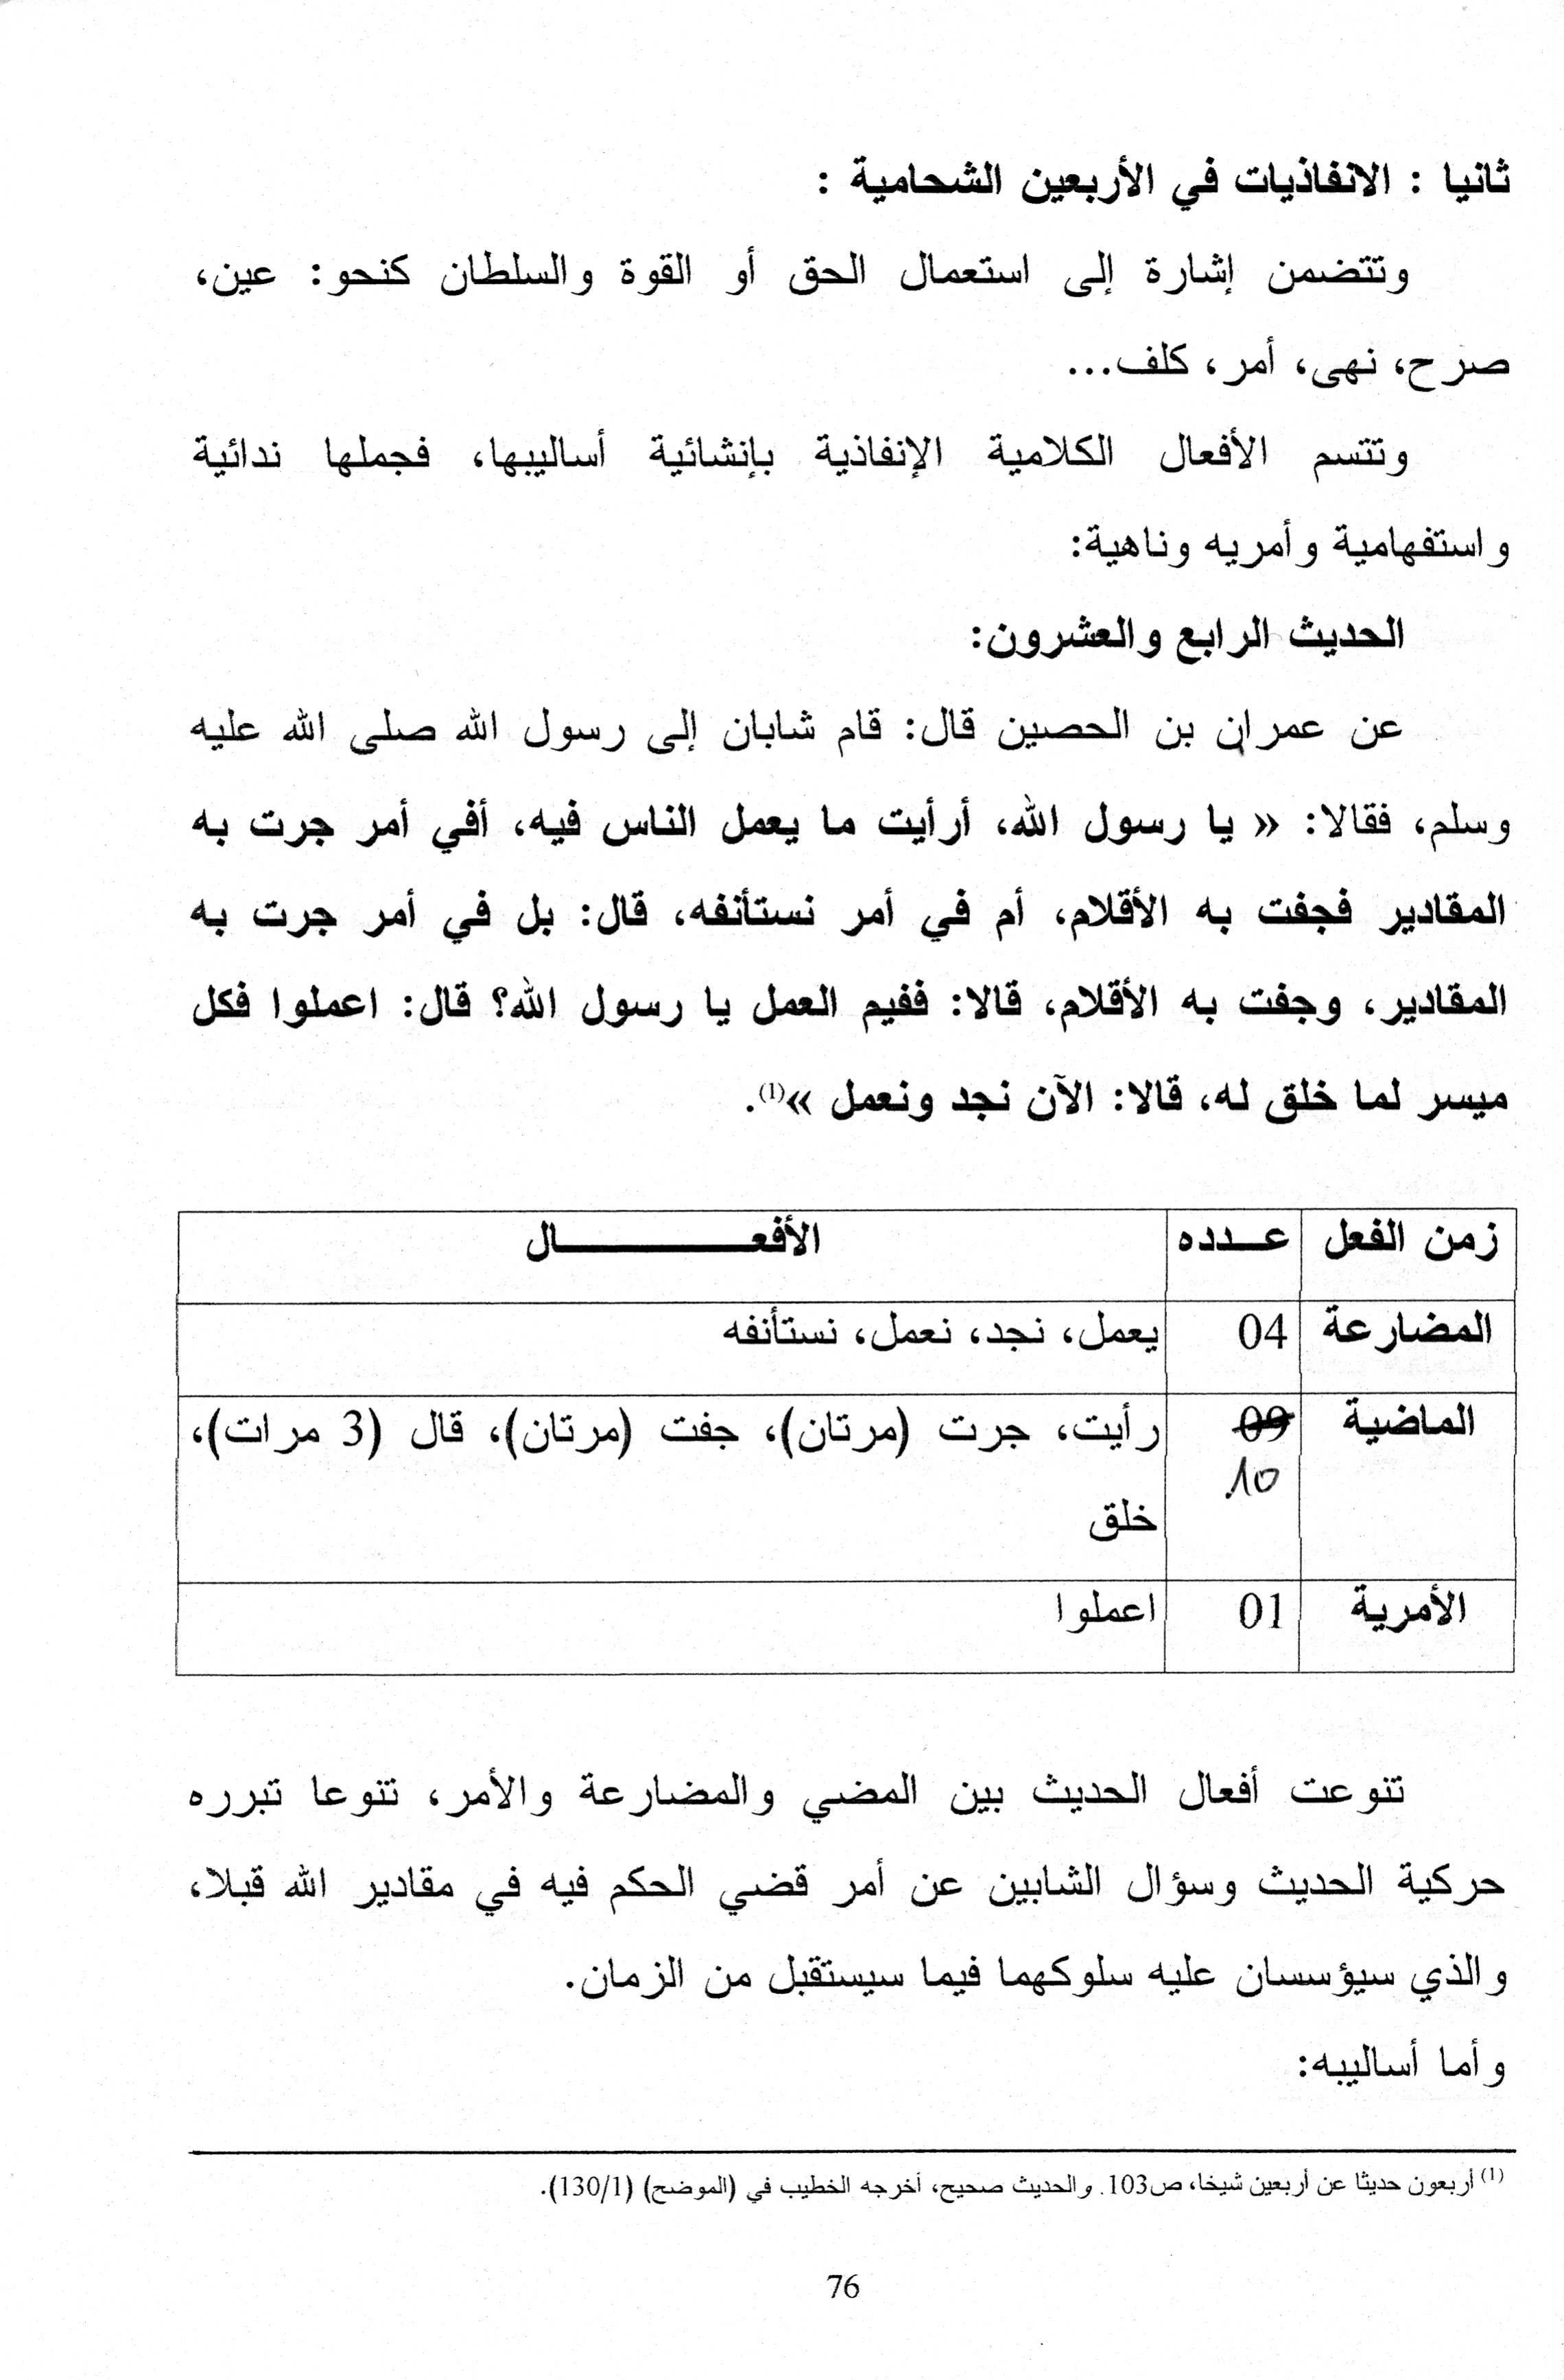 ثانيا : الانفاذيات في الأربعين الشحامية :
وتتضمن إشارة إلى استعمال الحق أو القوة والسلطان كنحو: عين،
صرح، نهى، أمر، كلف...
وتتسم الأفعال الكلامية الإنفاذية بإنشائية أساليبها، فجملها ندائية
واستفهامية وأمريه وناهية:
الحديث الرابع والعشرون:
عن عمران بن الحصين قال: قام شابان إلى رسول الله صلى الله عليه
وسلم، فقالا: « يا رسول الله، أرأيت ما يعمل الناس فيه، أفي أمر جرت به
المقادير فجفت به الأقلام، أم في أمر نستأنفه، قال: بل في أمر جرت به
المقادير، وجفت به الأقلام، قالا: ففيم العمل يا رسول الله؟ قال: اعملوا فكل
ميسر لما خلق له، قالا: الآن نجد ونعمل »(1).
زمن الفعل عـدده الأفعـــــــــال
المضارعة 04 يعمل، نجد، نعمل، نستأنفه
الماضية 09 رأيت، جرت (مرتان)، جفت (مرتان)، قال (3 مرات)،
10.
خلق
الأمرية 01 اعملوا
تنوعت أفعال الحديث بين المضي والمضارعة والأمر، تنوعا تبرره
حركية الحديث وسؤال الشابين عن أمر قضي الحكم فيه في مقادير الله قبلا،
والذي سيؤسسان عليه سلوكهما فيما سيستقبل من الزمان.
وأما أساليبه:
(1) أربعون حديثا عن أربعين شيخا، ص103. والحديث صحيح، أخرجه الخطيب في (الموضح) (130/1).
76